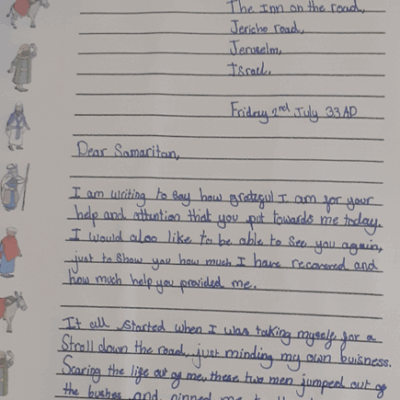 The Inn on the road,
Jericho road,
Jeruselm,
Israel.
Friday 2nd July 33AD
Dear Samaritan,
I am writing to say how grategul I am for your
help and attention that you put towards me today.
I would also like to be able to see you again,
just to show you how much I have recovered and
how much help you provided me.
It all started when I was taking myself for a
Stroll down the road, just minding my own buisness.
Scaring the life out of me, these two men jumped out of
the bushes and pinned me to the